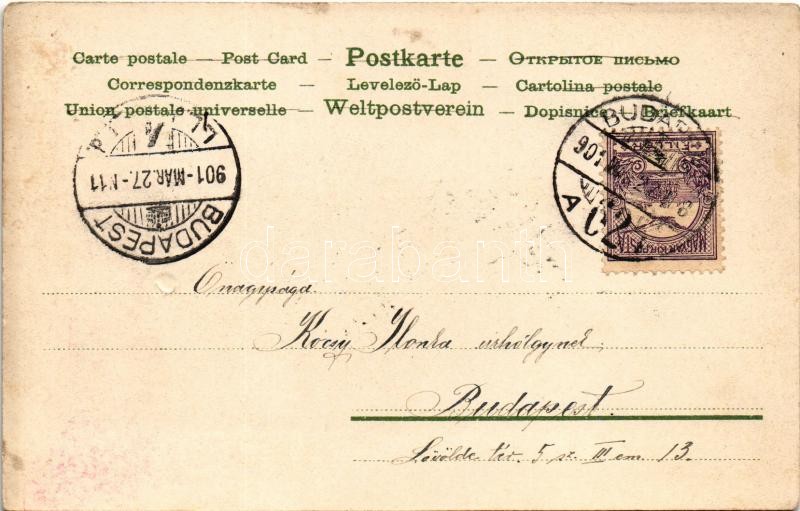 Carte postale – Post Card – Postkarte – Открытое письмо
Correspondenzkarte – Levelező-Lap – Cartolina postale
Union postale universelle – Weltpostverein – Dopisnice – Briefkaart
BUDAPEST
901-MÁR.27.-N11
BUDAP
901
A
MAGYAR KIR. POSTA
darabanth
Önagysága
Kócsy Ilonka úrhölgynek
Budapest.
Lövölde tér. 5 sz. III em 13.